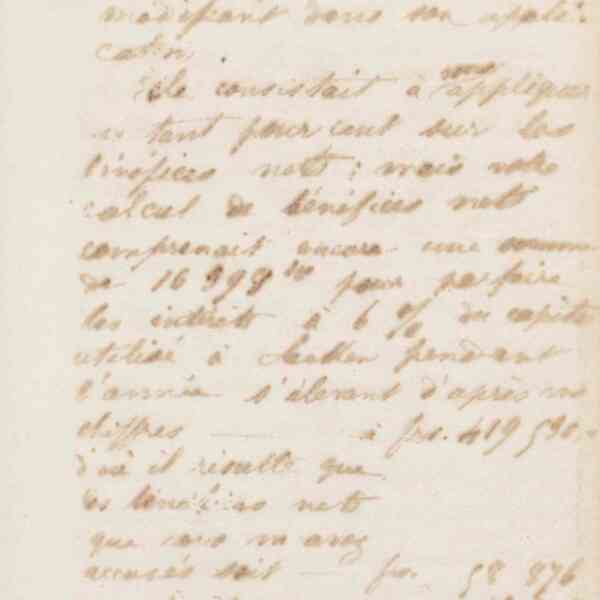 modifiant dans son appli-
cation.
Elle consistait à nous appliquer
un tant pour cent sur les
bénéfices nets ; mais votre
calcul de bénéfices nets
comprenait encore une somme
de 16 998 pour parfaire
les intérêts à 6 % du capital
utilisé à pendant
l'année s'élevant d'après vos
chiffres — à frs. 419 530,-
d'où il résulte que
les bénéfices nets
que vous m'avez
accusés soit — frs. 58 876